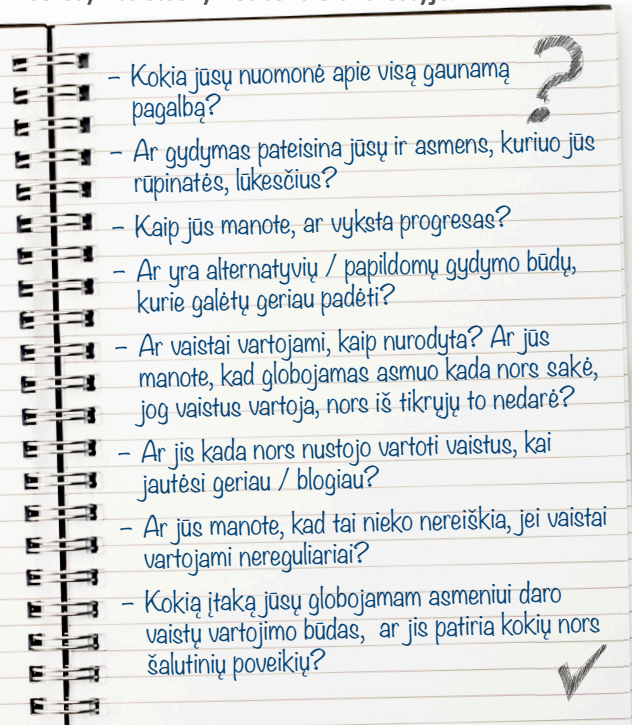 – Kokia jūsų nuomonė apie visą gaunamą
pagalbą?
– Ar gydymas pateisina jūsų ir asmens, kuriuo jūs
rūpinatės, lūkesčius?
– Kaip jūs manote, ar vyksta progresas?
– Ar yra alternatyvių / papildomų gydymo būdų,
kurie galėtų geriau padėti?
– Ar vaistai vartojami, kaip nurodyta? Ar jūs
manote, kad globojamas asmuo kada nors sakė,
jog vaistus vartoja, nors iš tikrųjų to nedarė?
– Ar jis kada nors nustojo vartoti vaistus, kai
jautėsi geriau / blogiau?
– Ar jūs manote, kad tai nieko nereiškia, jei vaistai
vartojami nereguliariai?
– Kokią įtaką jūsų globojamam asmeniui daro
vaistų vartojimo būdas, ar jis patiria kokių nors
šalutinių poveikių?